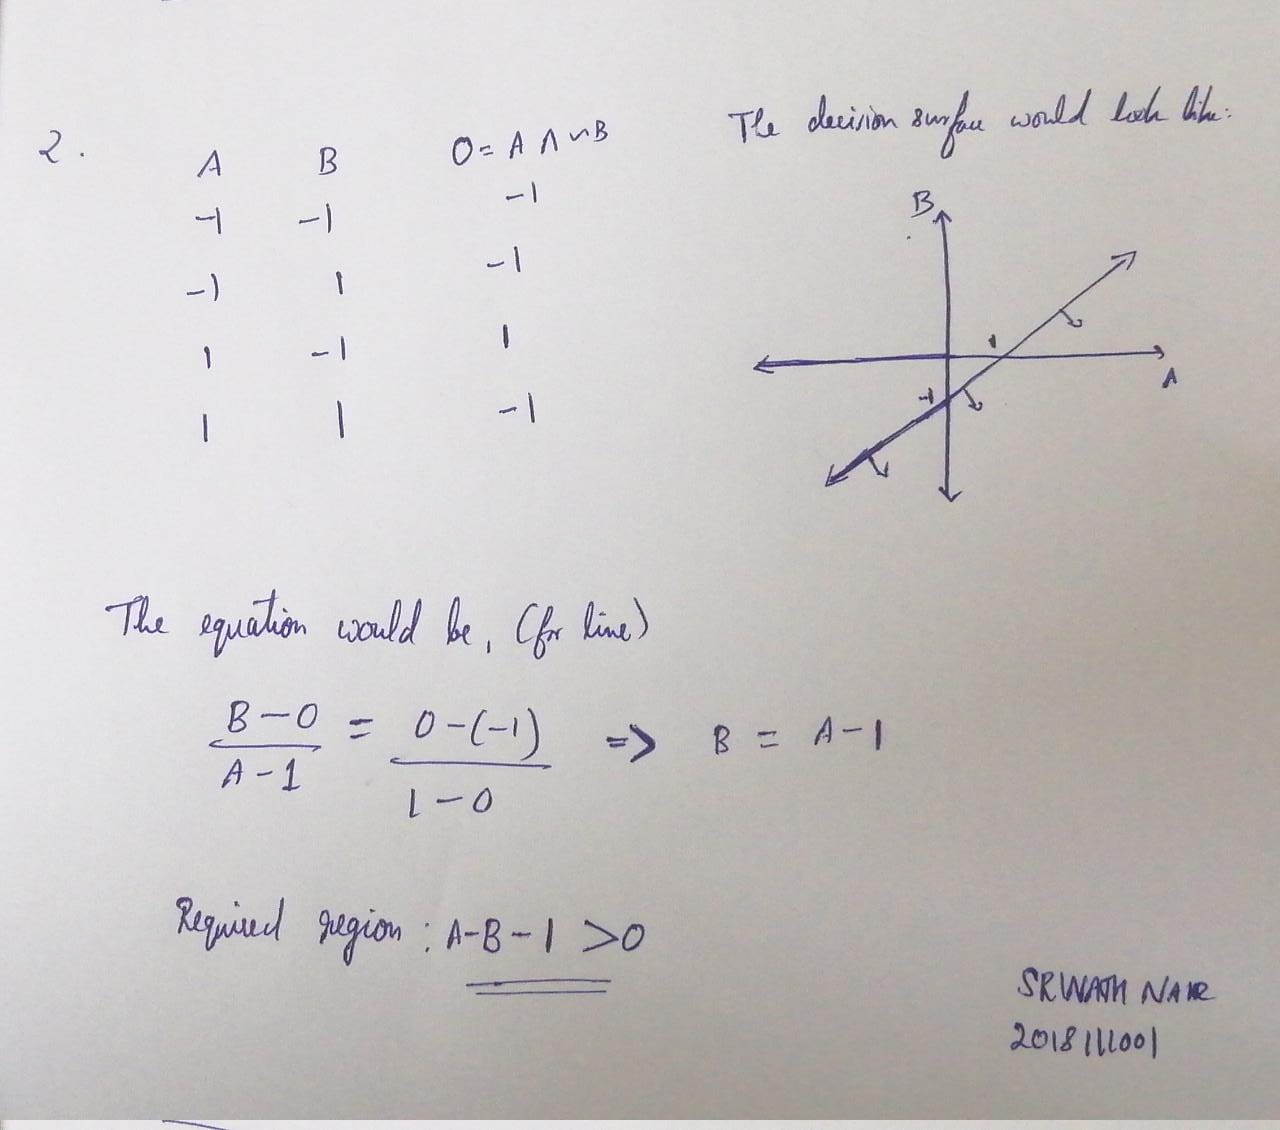 2.
A B O = A ∧ ~B
-1 -1 -1
-1 1 -1
1 -1 1
1 1 -1
The decision surface would look like:
B
1
A
-1
The equation would be, (for line)
B-0 / A-1 = 0-(-1) / 1-0 => B = A-1
Required region : A-B-1 >0
NAIR
2018111001